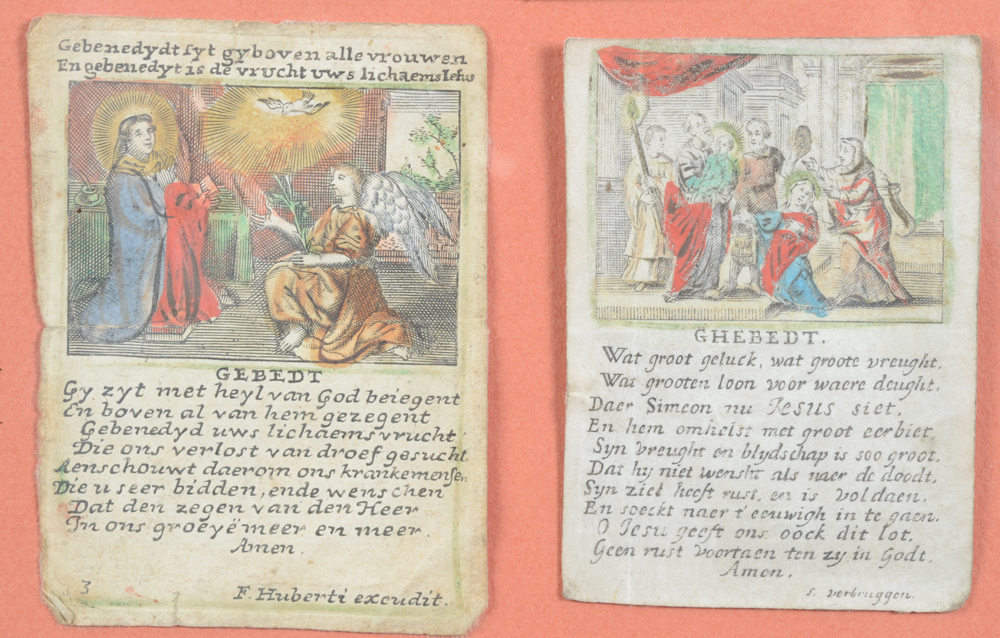 Gebenedydt syt gy boven alle vrouwen
En gebenedyt is de vrucht uws lichaems Iesus
GEBEDT
Gy zyt met heyl van God beiegent
En boven al van hem gezegent
Gebenedyd uws lichaems vrucht
Die ons verlost van droef gesucht
Aenschouwt daerom ons kranke mensen
Die u seer bidden, ende wenschen
Dat den zegen van den Heer
In ons groeyë meer en meer.
Amen.
3
F. Huberti excudit.
GHEBEDT.
Wat groot geluck, wat groote vreught.
Wat grooten loon voor waere deught.
Daer Simeon nu JESUS siet,
En hem omhelst met groot eerbiet,
Syn vreught en blydschap is soo groot,
Dat hy niet wenskt als naer de doodt.
Syn ziel heeft rust, en is voldaen,
En soeckt naer t'eeuwigh in te gaen.
O Jesu geeft ons oock dit lot,
Geen rust voortaen ten zy in Godt.
Amen.
s. verbruggen.